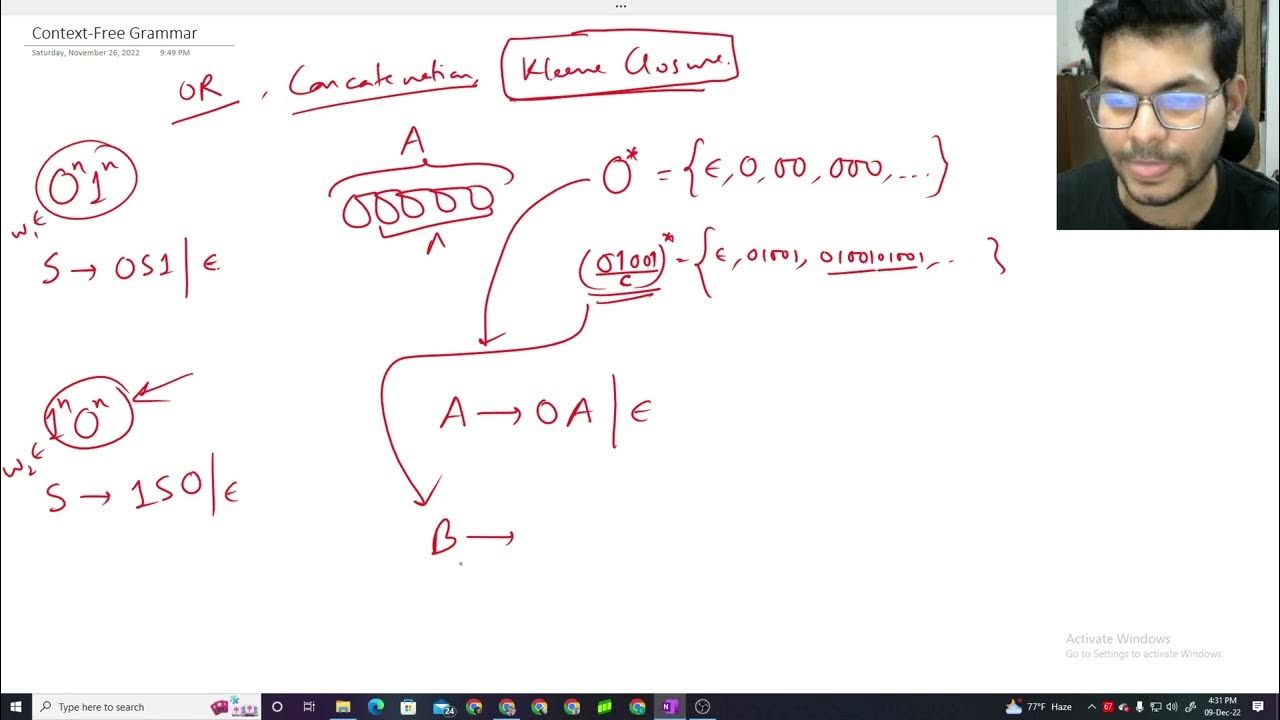 ...
Context-Free Grammar
Saturday, November 26, 2022 9:49 PM
OR, Concatenation, Kleene Closure.
0ⁿ1ⁿ
w₁ ∈
S → 0S1 | ϵ
A
00000
A
0* = {ϵ, 0, 00, 000, ...}
(01001)* = {ϵ, 01001, 0100101001, ... }
C
1ⁿ0ⁿ
w₂ ∈
S → 1S0 | ϵ
A → 0A | ϵ
B →
Activate Windows
Go to Settings to activate Windows.
Type here to search
24
N
77°F Haze
67
4:31 PM
09-Dec-22